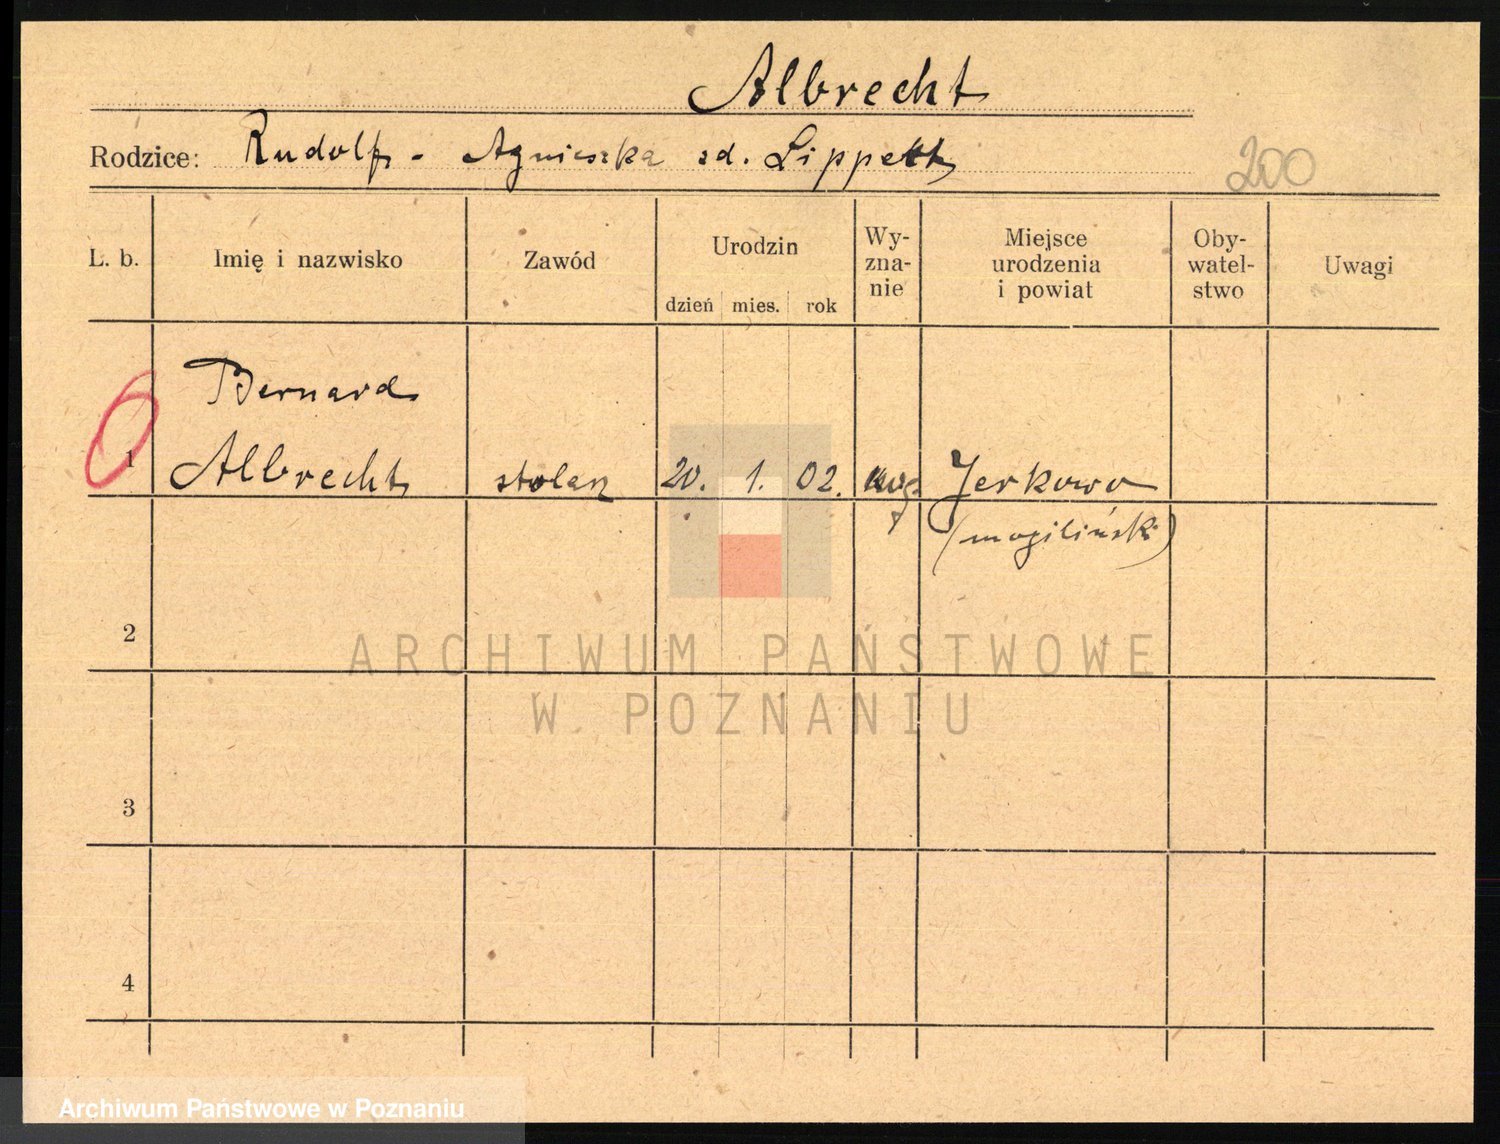 Albrecht
Rodzice: Rudolf - Agnieszka zd. Lippelt
200
L. b. Imię i nazwisko Zawód Urodzin Wy-zna-nie Miejsce urodzenia i powiat Oby-watel-stwo Uwagi
dzień mies. rok
Bernard
1 Albrecht stolarz 20. 1. 02. Jerkowo
(mogiliński)
2
ARCHIWUM PAŃSTWOWE
W POZNANIU
3
4
Archiwum Państwowe w Poznaniu